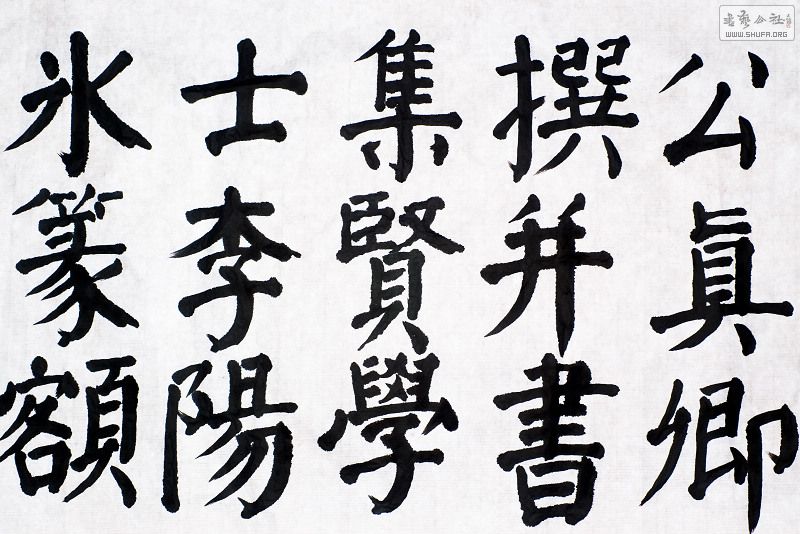 公真卿
撰并書
集賢學
士李陽
氷篆額
书艺公社
WWW.SHUFA.ORG